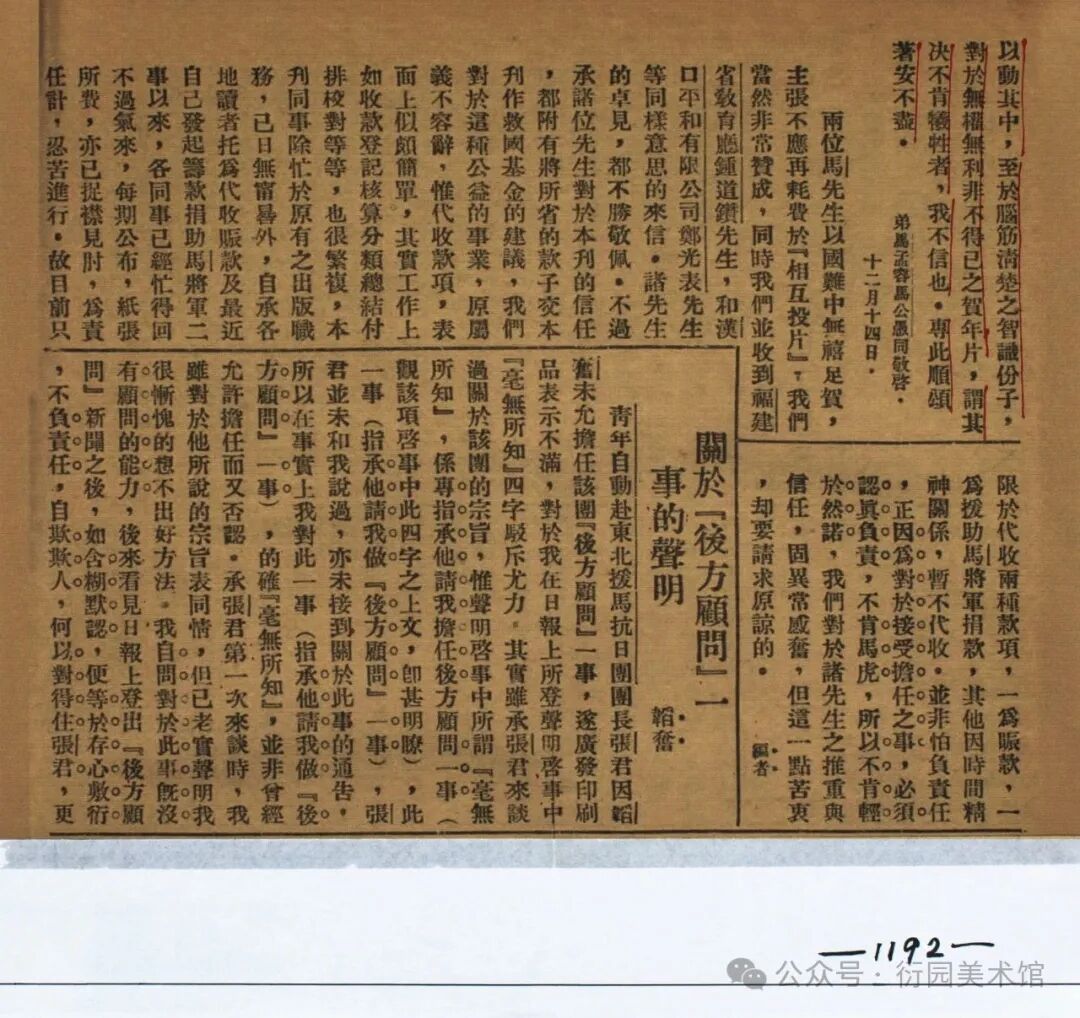 以動其中，至於腦筋清楚之智識份子，
對於無權無利非不得已之賀年片，謂其
决不肯犧牲者，我不信也。專此順頌
著安不盡。
弟馬孟容馬公愚同敬啓。
十二月十四日。
兩位馬先生以國難中無禧足賀，
主張不應再耗費於『相互投片』，我們
當然非常贊成，同時我們並收到福建
省敎育廳鍾道鑽先生，和漢
口平和有限公司鄭光表先生
等同樣意思的來信。諸先生
的卓見，都不勝敬佩。不過
承諸位先生對於本刊的信任
，都附有將所省的款子交本
刊作救國基金的建議，我們
對於這種公益的事業，原屬
義不容辭，惟代收款項，表
面上似頗簡單，其實工作上
如收款登記核算分類總結付
排校對等等，也很繁複，本
刊同事除忙於原有之出版職
務，已日無甯晷外，自承各
地讀者托爲代收賑款及最近
自己發起籌款捐助馬將軍二
事以來，各同事已經忙得回
不過氣來，每期公布，紙張
所費，亦已捉襟見肘，爲責
任計，忍苦進行。故目前只
限於代收兩種款項，一爲賑款，一
爲援助馬將軍捐款，其他因時間精
神關係，暫不代收。並非怕負責任
，正因爲對於接受擔任之事，必須
認眞負責，不肯馬虎，所以不肯輕
於然諾，我們對於諸先生之推重與
信任，固異常感奮，但這一點苦衷
，却要請求原諒的。
編者。
關於『後方顧問』一
事的聲明
韜奮
靑年自動赴東北援馬抗日團團長張君因韜
奮未允擔任該團『後方顧問』一事，遂廣發印刷
品表示不滿，對於我在日報上所登聲明啓事中
『毫無所知』四字駁斥尤力。其實雖承張君來談
過關於該團的宗旨，惟聲明啓事中所謂『毫無
所知』，係專指承他請我擔任後方顧問一事（
觀該項啓事中此四字之上文，卽甚明瞭），此
一事（指承他請我做『後方顧問』一事），張
君並未和我說過，亦未接到關於此事的通告，
所以在事實上我對此一事（指承他請我做『後
方顧問』一事），的確『毫無所知』，並非曾經
允許擔任而又否認。承張君第一次來談時，我
雖對於他所說的宗旨表同情，但已老實聲明我
很慚愧的想不出好方法。我自問對於此事旣沒
有顧問的能力，後來看見日報上登出『後方顧
問』新聞之後，如含糊默認，便等於存心敷衍
，不負責任，自欺欺人，何以對得住張君，更
—1192—
公众号：衍园美术馆